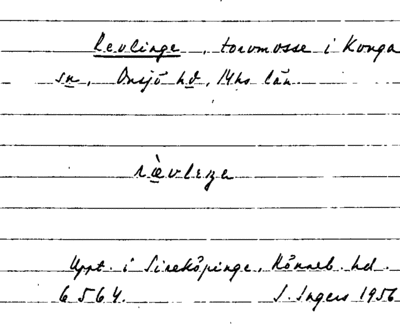 Revlinge, torvmosse i Konga
sn, Onsjö hd, Mhs län.
rævleŋa
Uppt. i Sireköpinge, Rönneb. hd.
6564. S. Ingers 1956